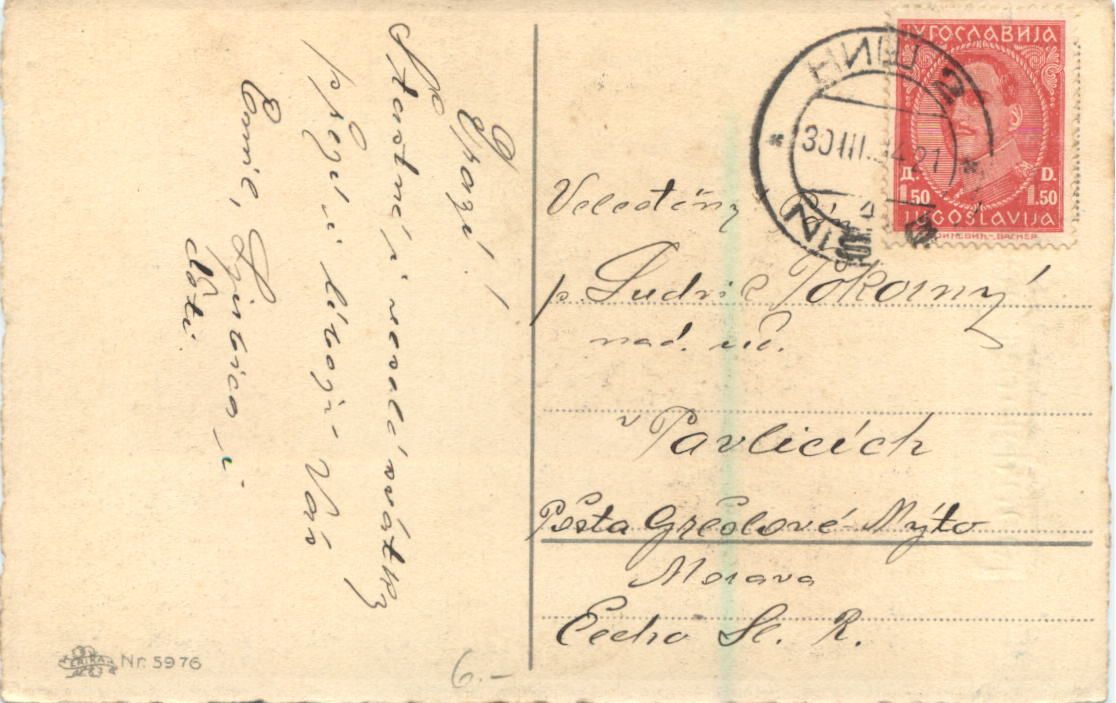 Drazí!
Šťastné i veselé svátky
přejí a líbají Vás
Emil, i
děti
Nr. 5976
6.-
НИШ 2
30 III. 34 21
NIŠ 2
ЈУГОСЛАВИЈА
Д. D.
1.50 1.50
JUGOSLAVIJA
Velectěný Pán
p. Ludvík Pokorný
nad. uč.
v Pavlicích
Pošta Grešlové-Mýto
Morava
Čecho Sl. R.